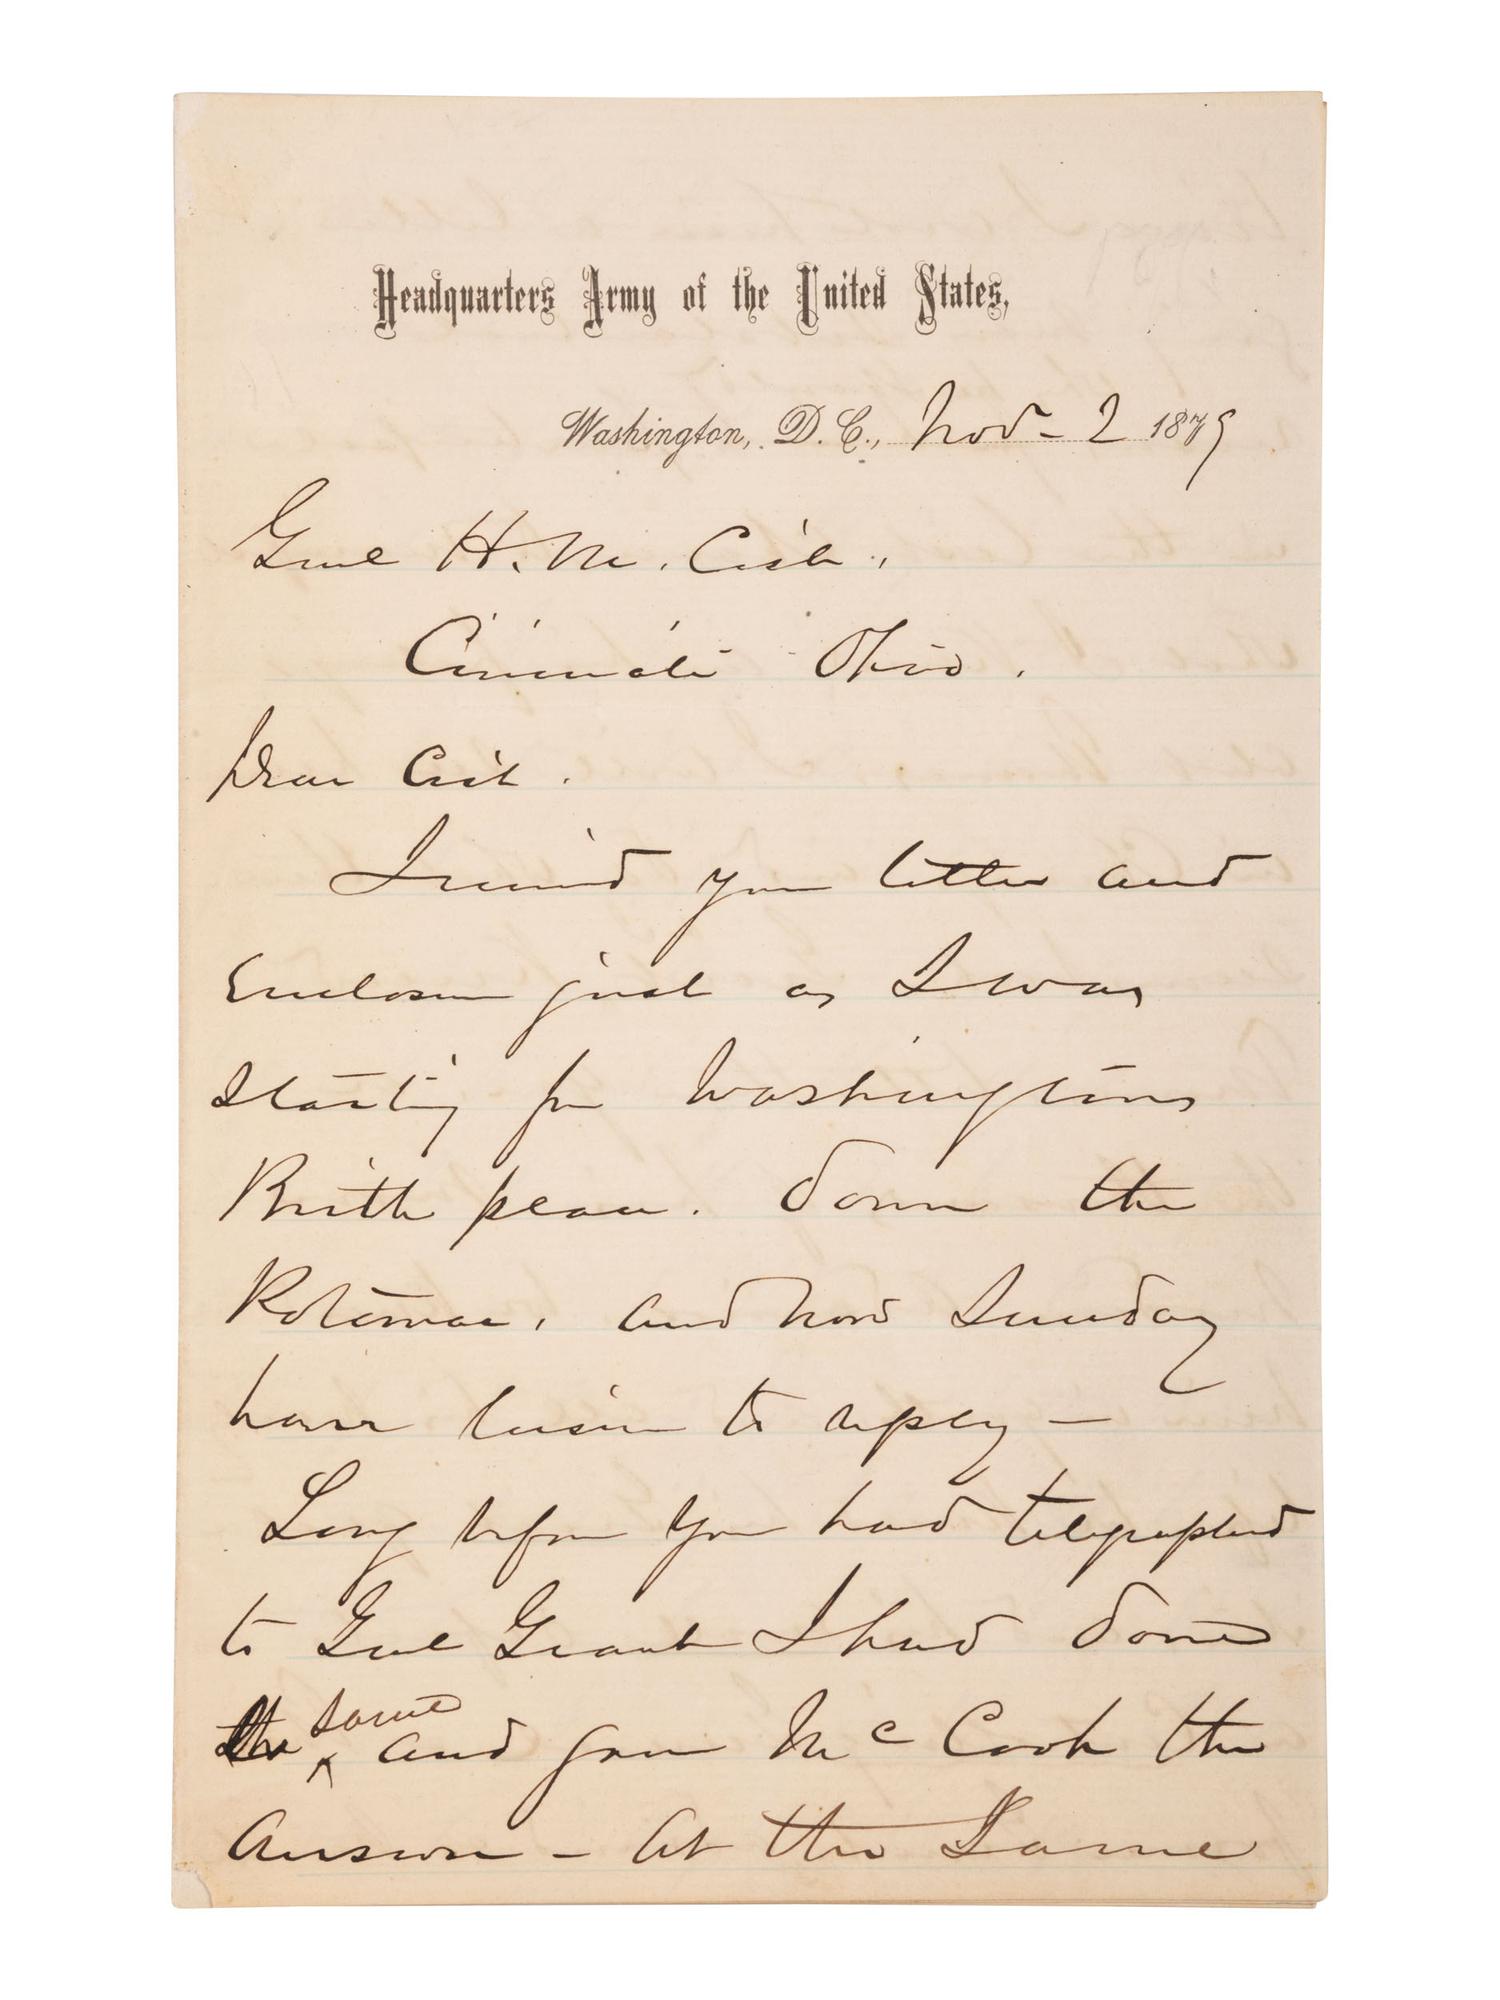 Headquarters Army of the United States,
Washington, D.C., Nov- 2 1879
Genl H. M. Cist,
Cincinnati Ohio.
Dear Cist.
I received your letter and
Enclosure just as I was
Starting for Washingtons
Birth place. down the
Potomac, and now Sunday
have leisure to reply —
Long before you had telegraphed
to Genl Grant I had done
the same and gave McCook the
Answer - At the Same